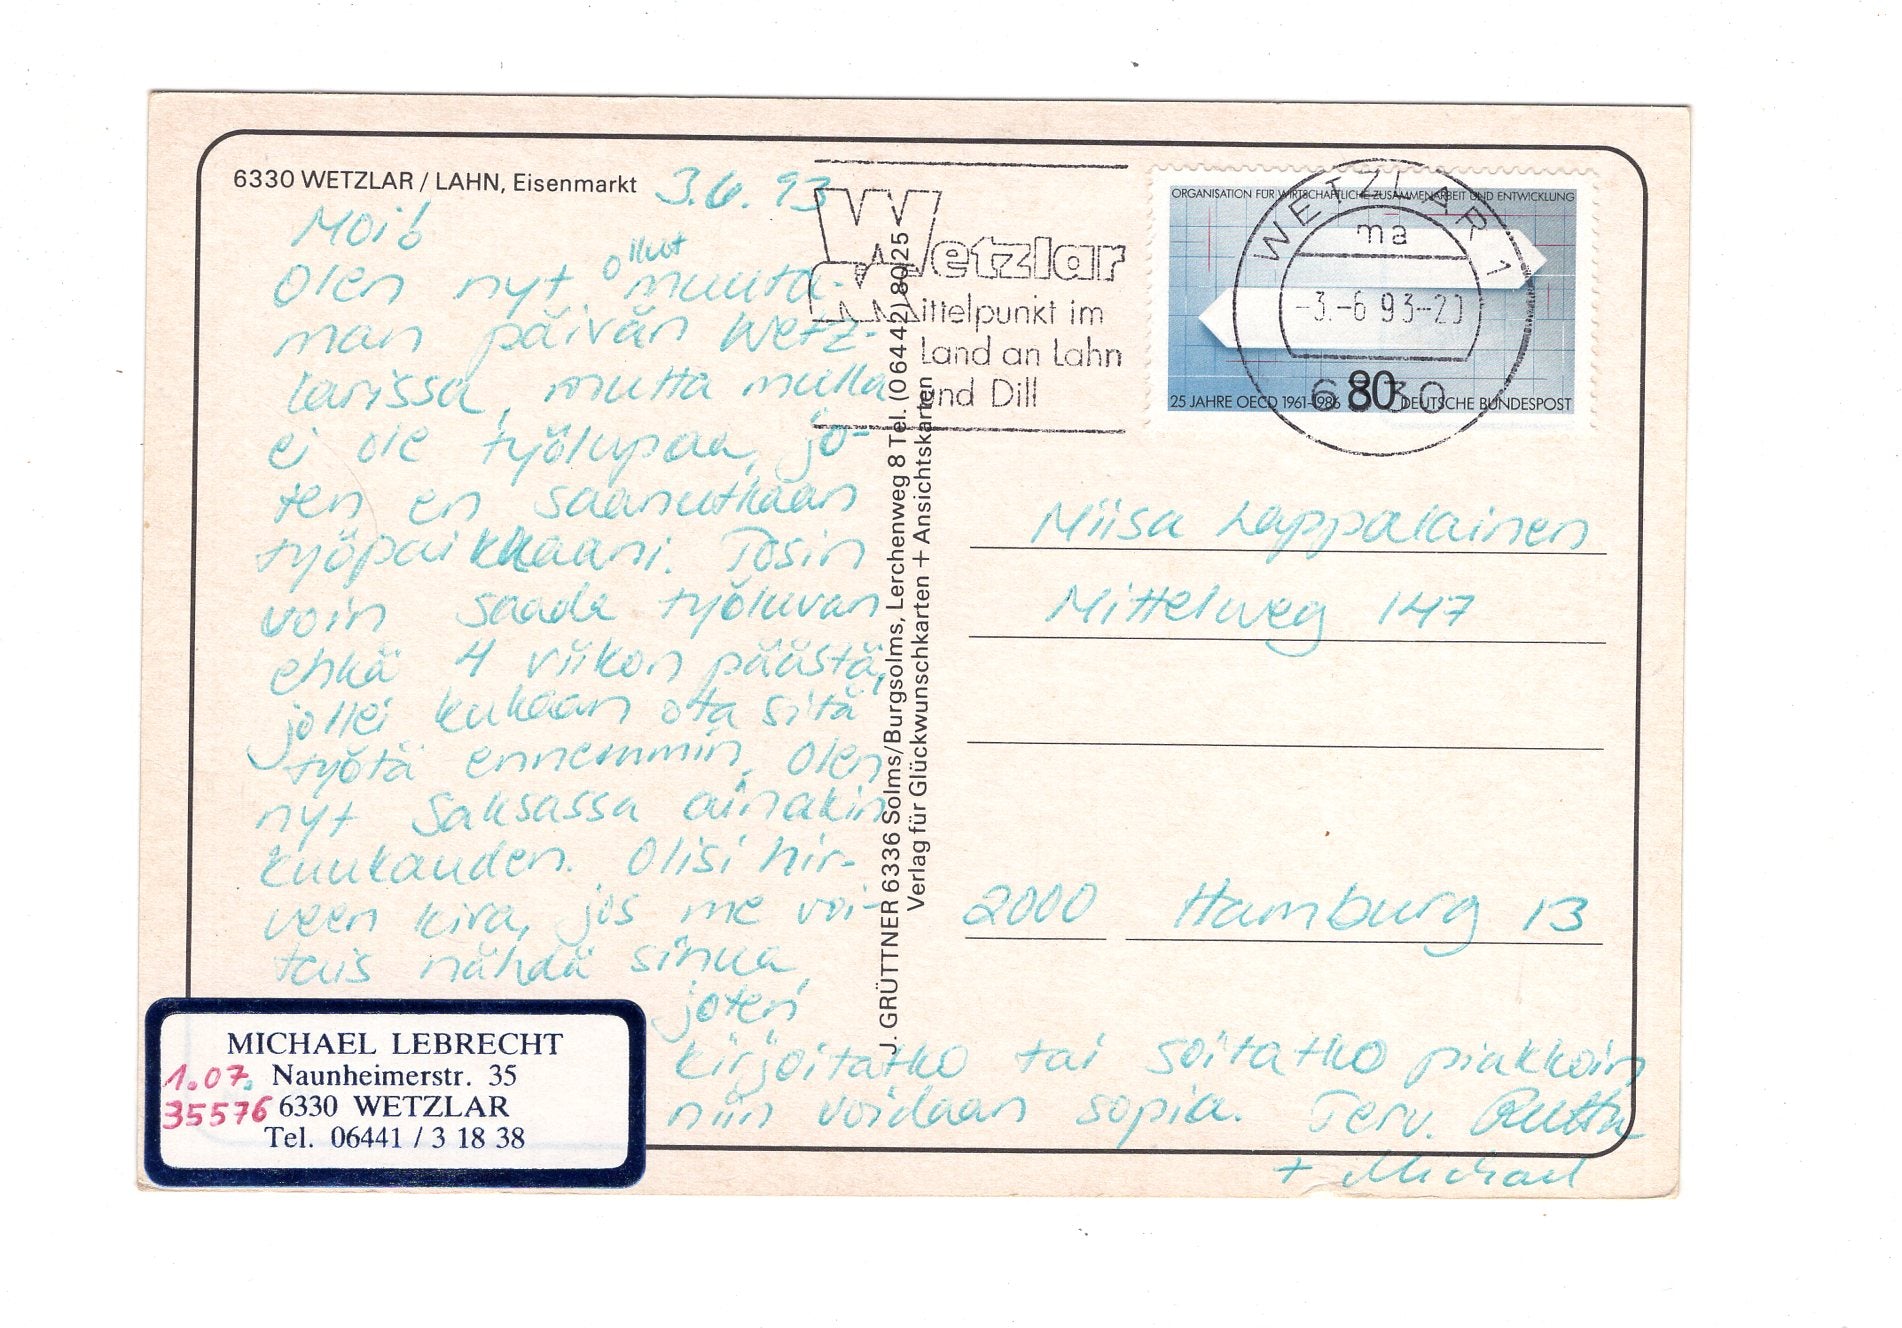 6330 WETZLAR / LAHN, Eisenmarkt
3.6.93
Moi!
Olen nyt ollut muuta-
man päivän Wetz-
larissa, mutta mulla
ei ole työlupaa, jo-
ten en saanutkaan
työpaikkaani. Tosin
voin saada työluvan
ehkä 4 viikon päästä,
jollei kukaan ota sitä
työtä ennemmin. Olen
nyt Saksassa ainakin
kuukauden. Olisi hir-
veen kiva, jos me voi-
tais nähdä sinua,
joten
kirjoitatko tai soitatko piakkoin
niin voidaan sopia. Terv. Riitta
+ Michael
MICHAEL LEBRECHT
1.07. Naunheimerstr. 35
35576 6330 WETZLAR
Tel. 06441 / 3 18 38
J. GRÜTTNER 6336 Solms/Burgsolms, Lerchenweg 8 Tel. (06442) 8025
Verlag für Glückwunschkarten + Ansichtskarten
Wetzlar
Mittelpunkt im
Land an Lahn
und Dill
ORGANISATION FÜR WIRTSCHAFTLICHE ZUSAMMENARBEIT UND ENTWICKLUNG
25 JAHRE OECD 1961-1986 80 DEUTSCHE BUNDESPOST
WETZLAR 1
ma
-3.-6 93-20
6330
Miisa Lappalainen
Mittelweg 147
2000 Hamburg 13